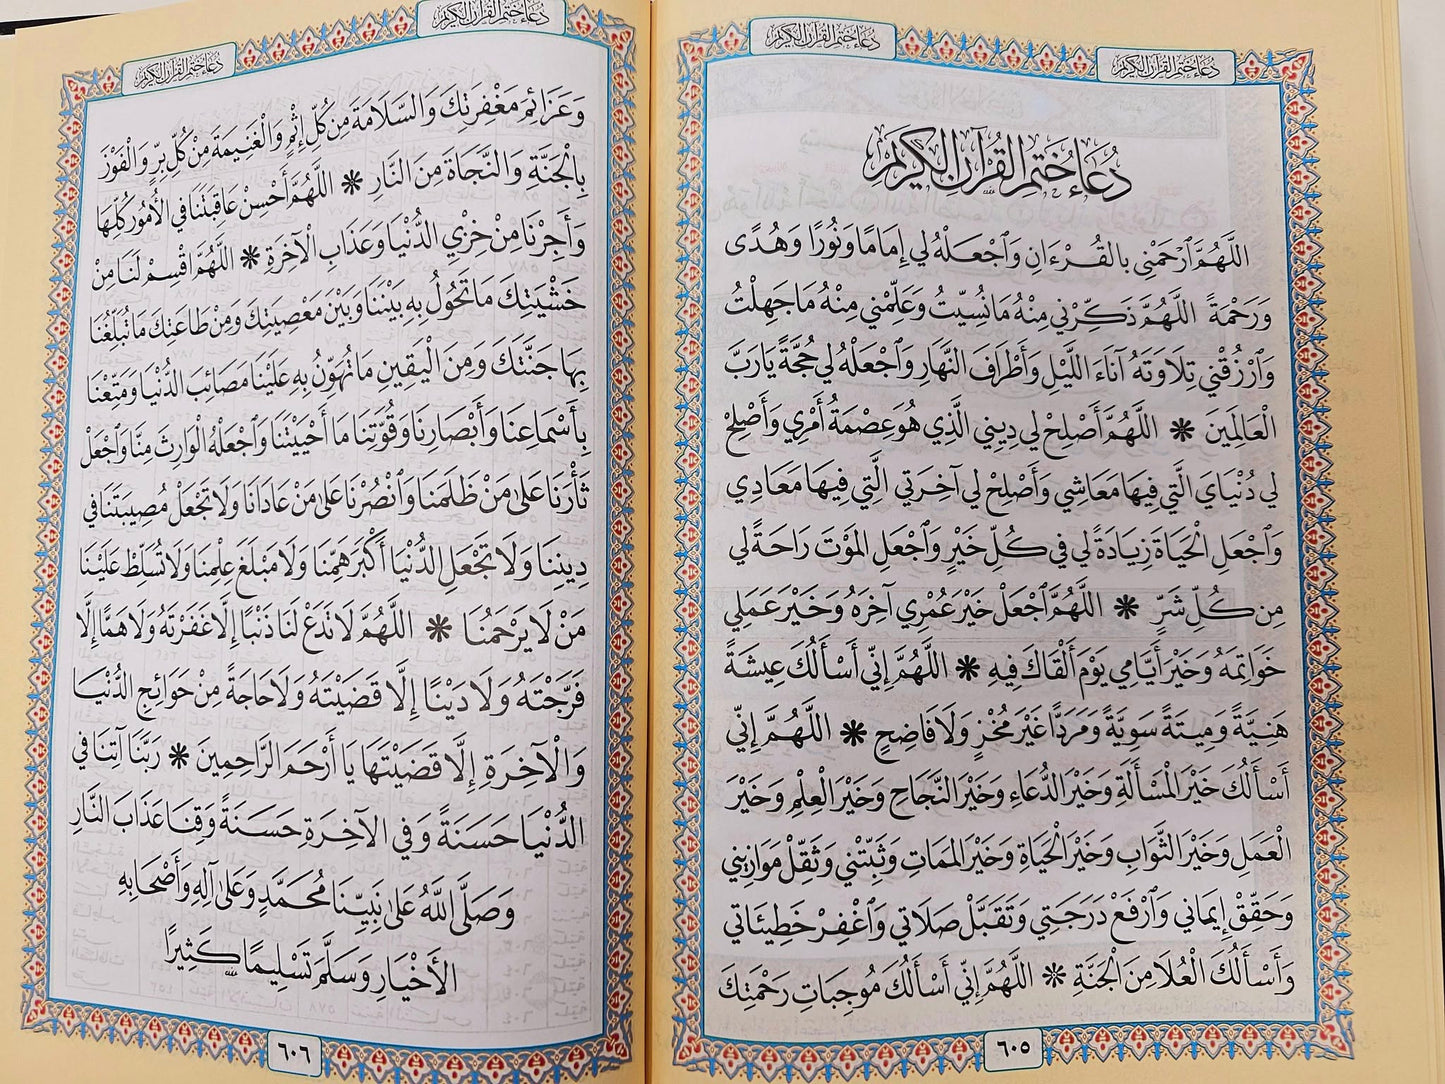 دُعَاءُ خَتْمِ الْقُرْآنِ الْكَرِيمِ
دُعَاءُ خَتْمِ الْقُرْآنِ الْكَرِيمِ
دُعَاءُ خَتْمِ الْقُرْآنِ الْكَرِيمِ
اللَّهُمَّ ٱرْحَمْنِي بِالقُرْءَانِ وَٱجْعَلْهُ لِي إِمَامًا وَنُورًا وَهُدًى
وَرَحْمَةً اللَّهُمَّ ذَكِّرْنِي مِنْهُ مَا نُسِّيتُ وَعَلِّمْنِي مِنْهُ مَا جَهِلْتُ
وَٱرْزُقْنِي تِلَاوَتَهُ آنَاءَ اللَّيْلِ وَأَطْرَافَ النَّهَارِ وَٱجْعَلْهُ لِي حُجَّةً يَا رَبَّ
الْعَالَمِينَ * اللَّهُمَّ أَصْلِحْ لِي دِينِي الَّذِي هُوَ عِصْمَةُ أَمْرِي وَأَصْلِحْ
لِي دُنْيَايَ الَّتِي فِيهَا مَعَاشِي وَأَصْلِحْ لِي آخِرَتِي الَّتِي فِيهَا مَعَادِي
وَٱجْعَلِ الْحَيَاةَ زِيَادَةً لِي فِي كُلِّ خَيْرٍ وَٱجْعَلِ الْمَوْتَ رَاحَةً لِي
مِن كُلِّ شَرٍّ * اللَّهُمَّ ٱجْعَلْ خَيْرَ عُمْرِي آخِرَهُ وَخَيْرَ عَمَلِي
خَوَاتِمَهُ وَخَيْرَ أَيَّامِي يَوْمَ أَلْقَاكَ فِيهِ * اللَّهُمَّ إِنِّي أَسْأَلُكَ عِيشَةً
هَنِيَّةً وَمِيتَةً سَوِيَّةً وَمَرَدًّا غَيْرَ مُخْزٍ وَلَا فَاضِحٍ * اللَّهُمَّ إِنِّي
أَسْأَلُكَ خَيْرَ الْمَسْأَلَةِ وَخَيْرَ الدُّعَاءِ وَخَيْرَ النَّجَاحِ وَخَيْرَ الْعِلْمِ وَخَيْرَ
الْعَمَلِ وَخَيْرَ الثَّوَابِ وَخَيْرَ الْحَيَاةِ وَخَيْرَ الْمَمَاتِ وَثَبِّتْنِي وَثَقِّلْ مَوَازِينِي
وَحَقِّقْ إِيمَانِي وَٱرْفَعْ دَرَجَتِي وَتَقَبَّلْ صَلَاتِي وَٱغْفِرْ خَطِيئَاتِي
وَأَسْأَلُكَ الْعُلَا مِنَ الْجَنَّةِ * اللَّهُمَّ إِنِّي أَسْأَلُكَ مُوجِبَاتِ رَحْمَتِكَ
٦٠٥
دُعَاءُ خَتْمِ الْقُرْآنِ الْكَرِيمِ
دُعَاءُ خَتْمِ الْقُرْآنِ الْكَرِيمِ
وَعَزَائِمَ مَغْفِرَتِكَ وَالسَّلَامَةَ مِن كُلِّ إِثْمٍ وَالْغَنِيمَةَ مِنْ كُلِّ بِرٍّ وَالْفَوْزَ
بِالْجَنَّةِ وَالنَّجَاةَ مِنَ النَّارِ * اللَّهُمَّ أَحْسِنْ عَاقِبَتَنَا فِي الْأُمُورِ كُلِّهَا
وَأَجِرْنَا مِنْ خِزْيِ الدُّنْيَا وَعَذَابِ الْآخِرَةِ * اللَّهُمَّ اقْسِمْ لَنَا مِنْ
خَشْيَتِكَ مَا تَحُولُ بِهِ بَيْنَنَا وَبَيْنَ مَعْصِيَتِكَ وَمِنْ طَاعَتِكَ مَا تُبَلِّغُنَا
بِهَا جَنَّتَكَ وَمِنَ الْيَقِينِ مَا تُهَوِّنُ بِهِ عَلَيْنَا مَصَائِبَ الدُّنْيَا وَمَتِّعْنَا
بِأَسْمَاعِنَا وَأَبْصَارِنَا وَقُوَّتِنَا مَا أَحْيَيْتَنَا وَٱجْعَلْهُ الْوَارِثَ مِنَّا وَٱجْعَلْ
ثَأْرَنَا عَلَى مَنْ ظَلَمَنَا وَٱنْصُرْنَا عَلَى مَنْ عَادَانَا وَلَا تَجْعَلْ مُصِيبَتَنَا فِي
دِينِنَا وَلَا تَجْعَلِ الدُّنْيَا أَكْبَرَ هَمِّنَا وَلَا مَبْلَغَ عِلْمِنَا وَلَا تُسَلِّطْ عَلَيْنَا
مَنْ لَا يَرْحَمُنَا * اللَّهُمَّ لَا تَدَعْ لَنَا ذَنْبًا إِلَّا غَفَرْتَهُ وَلَا هَمًّا إِلَّا
فَرَّجْتَهُ وَلَا دَيْنًا إِلَّا قَضَيْتَهُ وَلَا حَاجَةً مِنْ حَوَائِجِ الدُّنْيَا
وَالْآخِرَةِ إِلَّا قَضَيْتَهَا يَا أَرْحَمَ الرَّاحِمِينَ * رَبَّنَا آتِنَا فِي
الدُّنْيَا حَسَنَةً وَفِي الْآخِرَةِ حَسَنَةً وَقِنَا عَذَابَ النَّارِ
وَصَلَّى اللَّهُ عَلَى نَبِيِّنَا مُحَمَّدٍ وَعَلَى آلِهِ وَأَصْحَابِهِ
الْأَخْيَارِ وَسَلَّمَ تَسْلِيمًا كَثِيرًا
٦٠٦